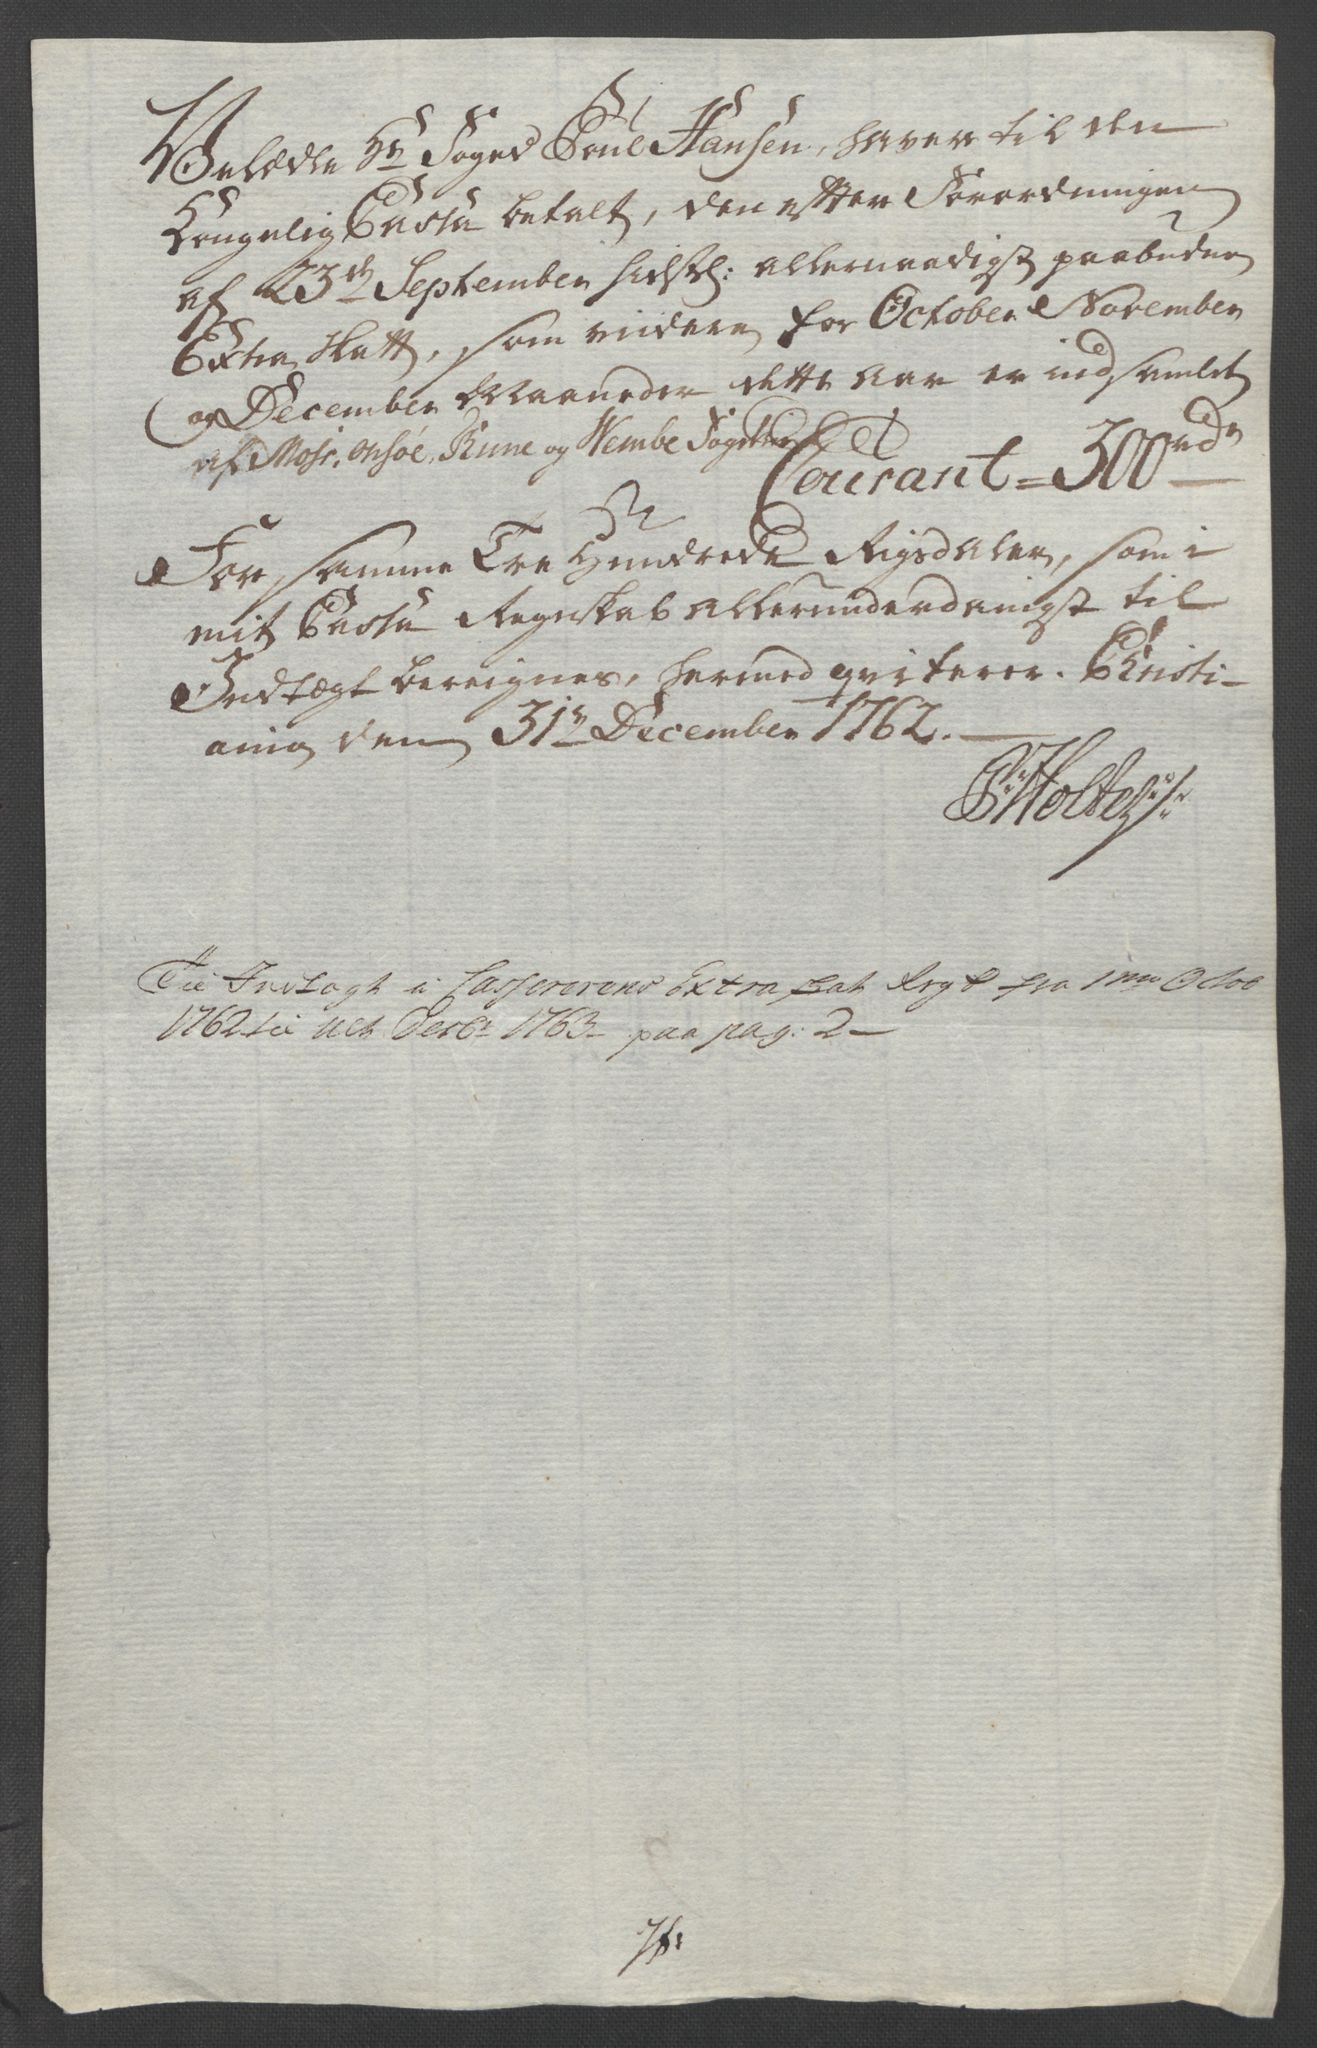 Velædle Hr Foged Poul Hansen, haver til den
Kongelig Cassa betalt, den efter Forordningen
af 23de September sidstl: allernaadigst paabudene
Extra Skatt, som videre for October November
og December Maaneder dette Aar er indsamlet
af Moss, Onsøe, Thune og Wembe Fogderie
Courant = 300 rdr
For samme Tre Hundrede Rigsdaler, som i
mit Cassa Regnskab allerunderdanigst til
Indtægt beregnes, hermed qviterer. Christi-
ania den 31te December 1762.
P Holte
Til Indtægt i Cassererens Extra skat Regsk fra 1mo Octob
1762 til ult Decbr 1763 paa pag: 2